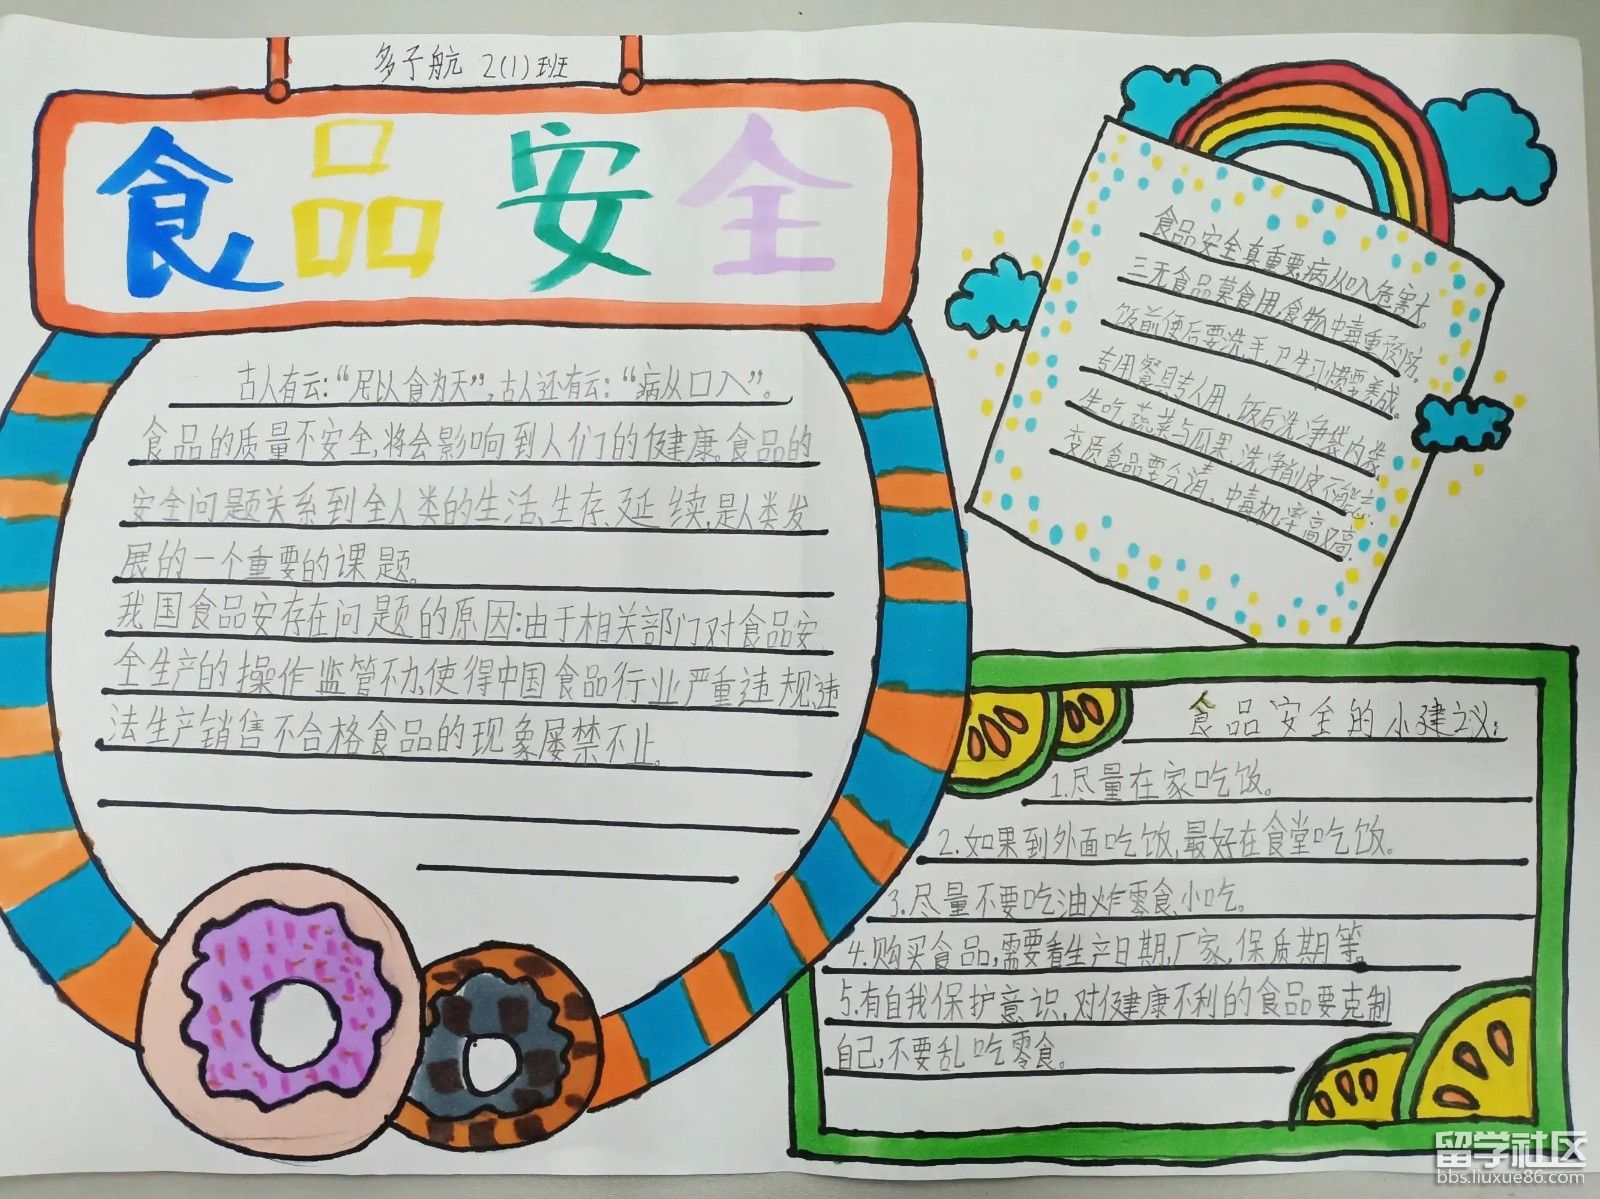 多子航 2(1)班
食品安全
古人有云:“民以食为天”,古人还有云:“病从口入”。
食品的质量不安全,将会影响到人们的健康。食品的
安全问题关系到全人类的生活、生存、延续,是人类发
展的一个重要的课题。
我国食品安存在问题的原因:由于相关部门对食品安
全生产的操作监管不力,使得中国食品行业严重违规、违
法生产销售不合格食品的现象屡禁不止。
食品安全真重要,病从口入危害大。
三无食品莫食用,食物中毒重预防。
饭前便后要洗手,卫生习惯要养成。
专用餐具专人用,饭后洗净袋内装。
生吃蔬菜与瓜果,洗净削皮不能忘.
变质食品要分清,中毒机率高又高.
食品安全的小建议:
1.尽量在家吃饭。
2.如果到外面吃饭,最好在食堂吃饭。
3.尽量不要吃油炸零食、小吃。
4.购买食品,需要看生产日期,厂家,保质期等。
5.有自我保护意识,对健康不利的食品要克制
自己,不要乱吃零食。
留学社区
bbs.liuxue86.com